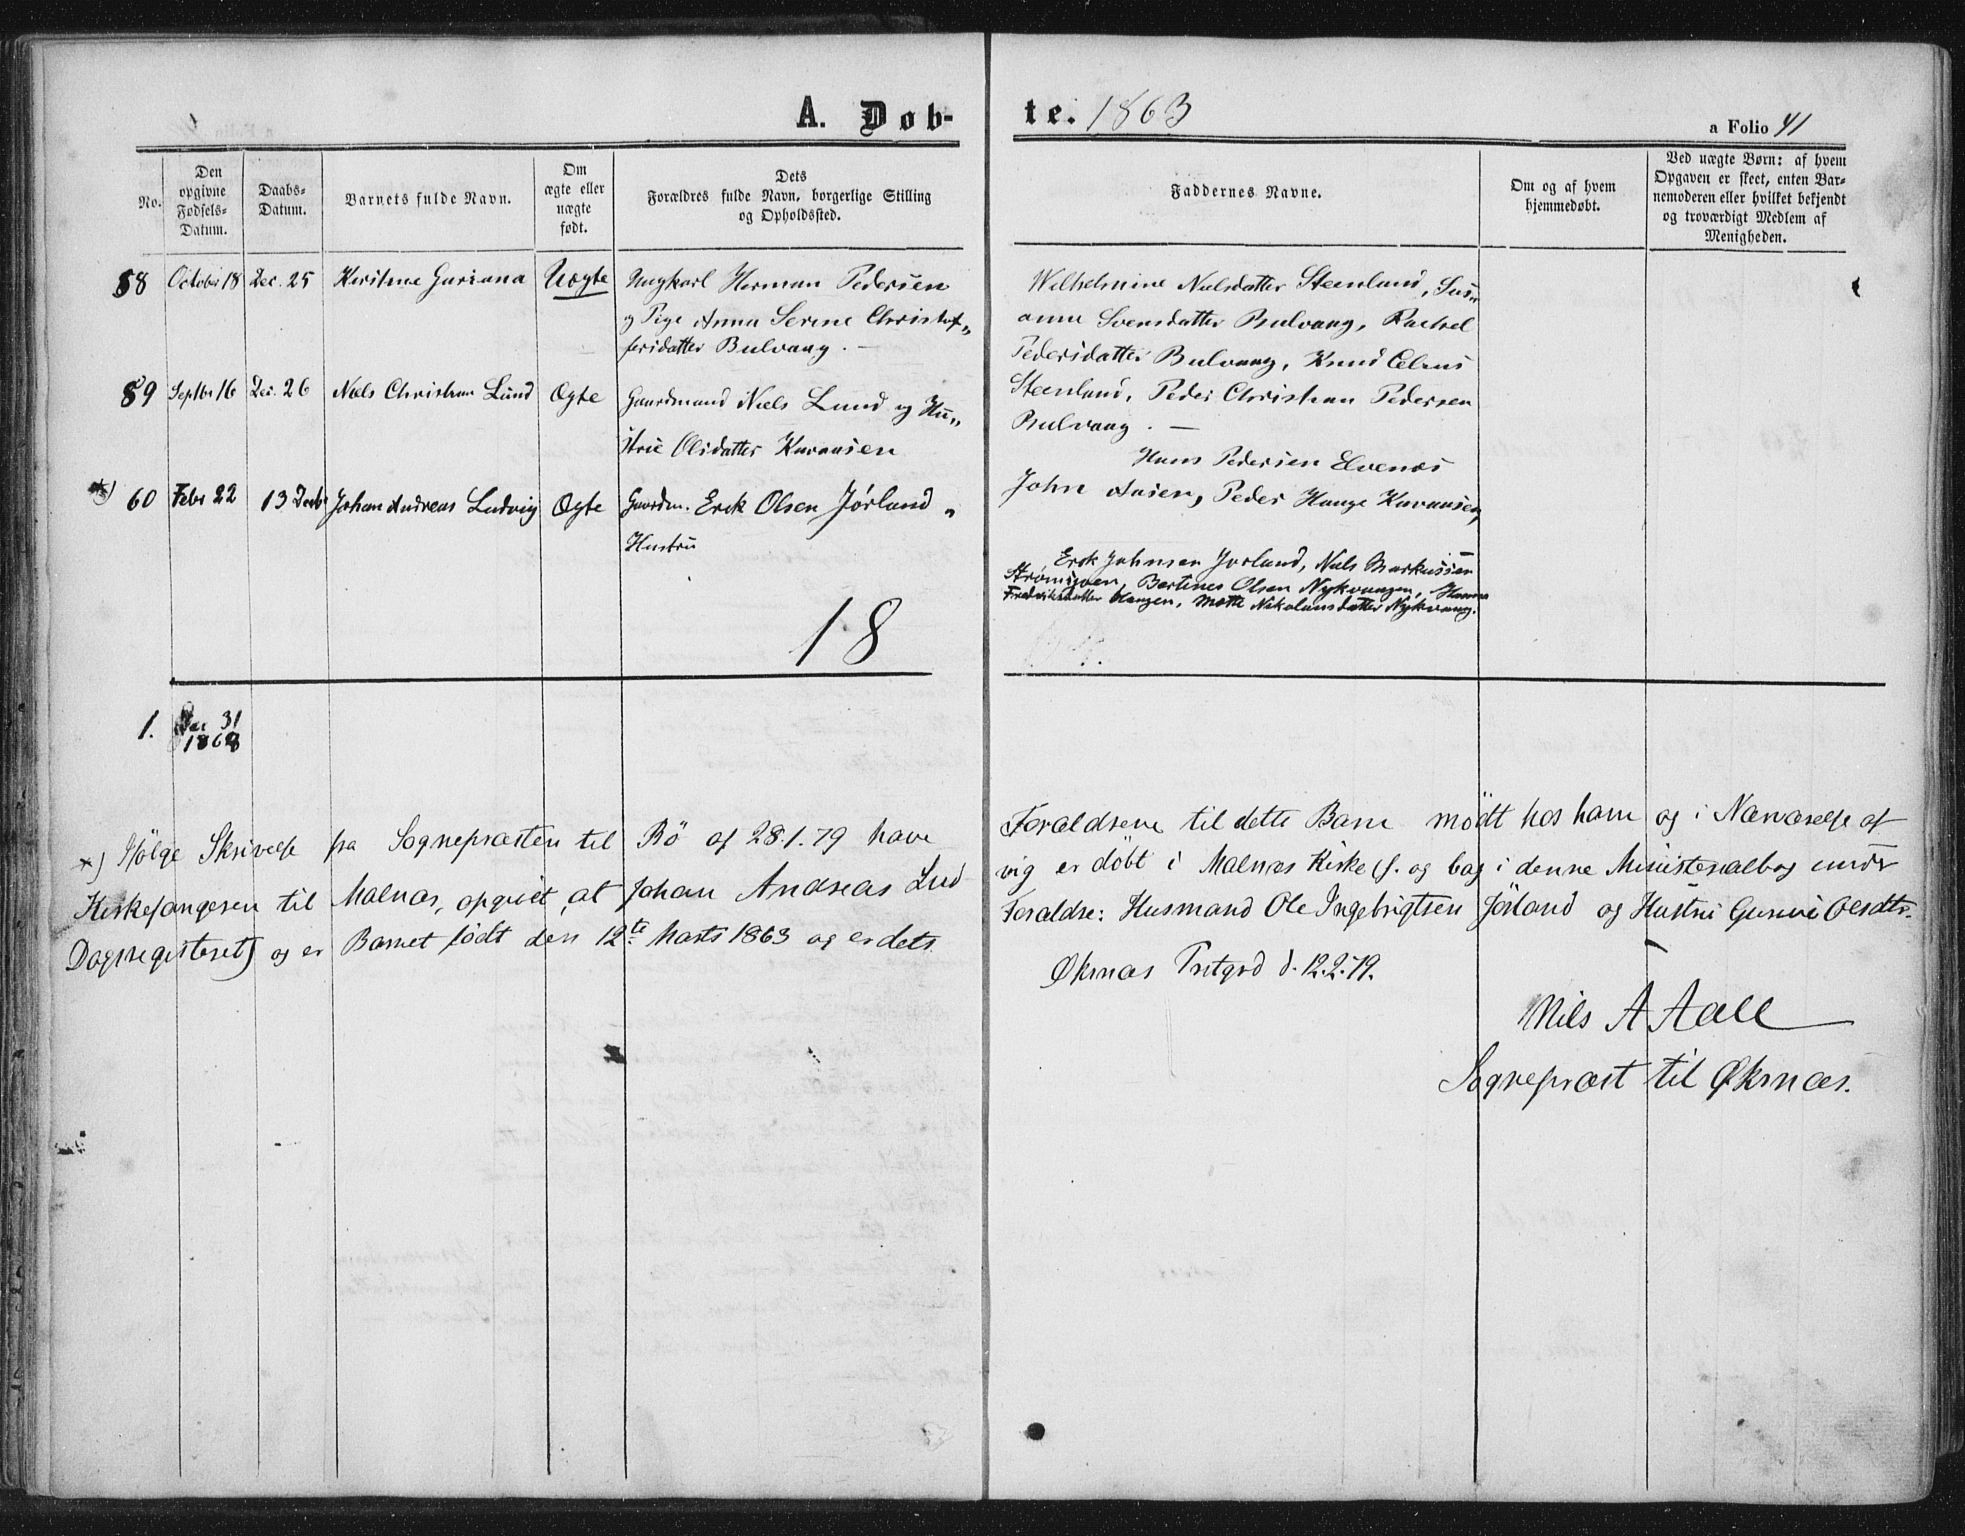 A. Døb-
te. 1863
a Folio 41
No.
Den opgivne Fødsels-Datum.
Daabs-Datum.
Barnets fulde Navn.
Om ægte eller uægte født.
Dets Forældres fulde Navn, borgerlige Stilling og Opholdssted.
Faddernes Navne.
Om og af hvem hjemmedøbt.
Ved uægte Børn: af hvem Opgaven er skeet, enten Barnemoderen eller hvilket bekjendt og troværdigt Medlem af Menigheden.
58 October 18 Dec. 25 Kirstine Uægte Ungkarl Herman Pedersen
og Pige Anna Serine Christof„
fersdatter Bulvaag. —
Wilhelmine Nielsdatter Steenland, Sus„
anne Svensdatter Bulvaag, Rachel
Pedersdatter Bulvaag, Knud
Steenland, Peder Christian Pedersen
Bulvaag. —
59 Septbr 16 Dec. 26 Niels Christian Lund Ægte Gaardmand Niels Lund og Hu„
strue Olsdatter Kavaasen
Hans Pedersen Elvenæs
John Aasen, Peder Hauge Kavaasen,
*) 60 Febr 22 13 Decbr Johan Andreas Ludvig Ægte Gaardm. Erik Olsen Jørland „
Hustru
Erik Johnsen Jørland, Niels Markussen
Bertines Olsen Nykvaagen, Hanna
Fredriksdatter Haugen, Mette Nikolaisdatter Nykvaag.
18
1. 31
1868
*) Ifølge Skrivelse fra Sognepræsten til Bö af 28.1.79 have
Forældrene til dette Barn mödt hos ham og i Nærværelse af
Kirkesangeren til Malnæs, opgivet, at Johan Andreas Lud
vig er döbt i Malnæs Kirke (s. og bag i denne Ministerialbog under
Dagsregisteret) og er Barnet födt den 12te Marts 1863 og er dets
Forældre: Husmand Ole Ingebrigtsen Jörland og Hustru Olsdtr.
Øksnæs Prstgrd d. 12.2.79.
Nils A Aall
Sognepræst til Øksnæs.